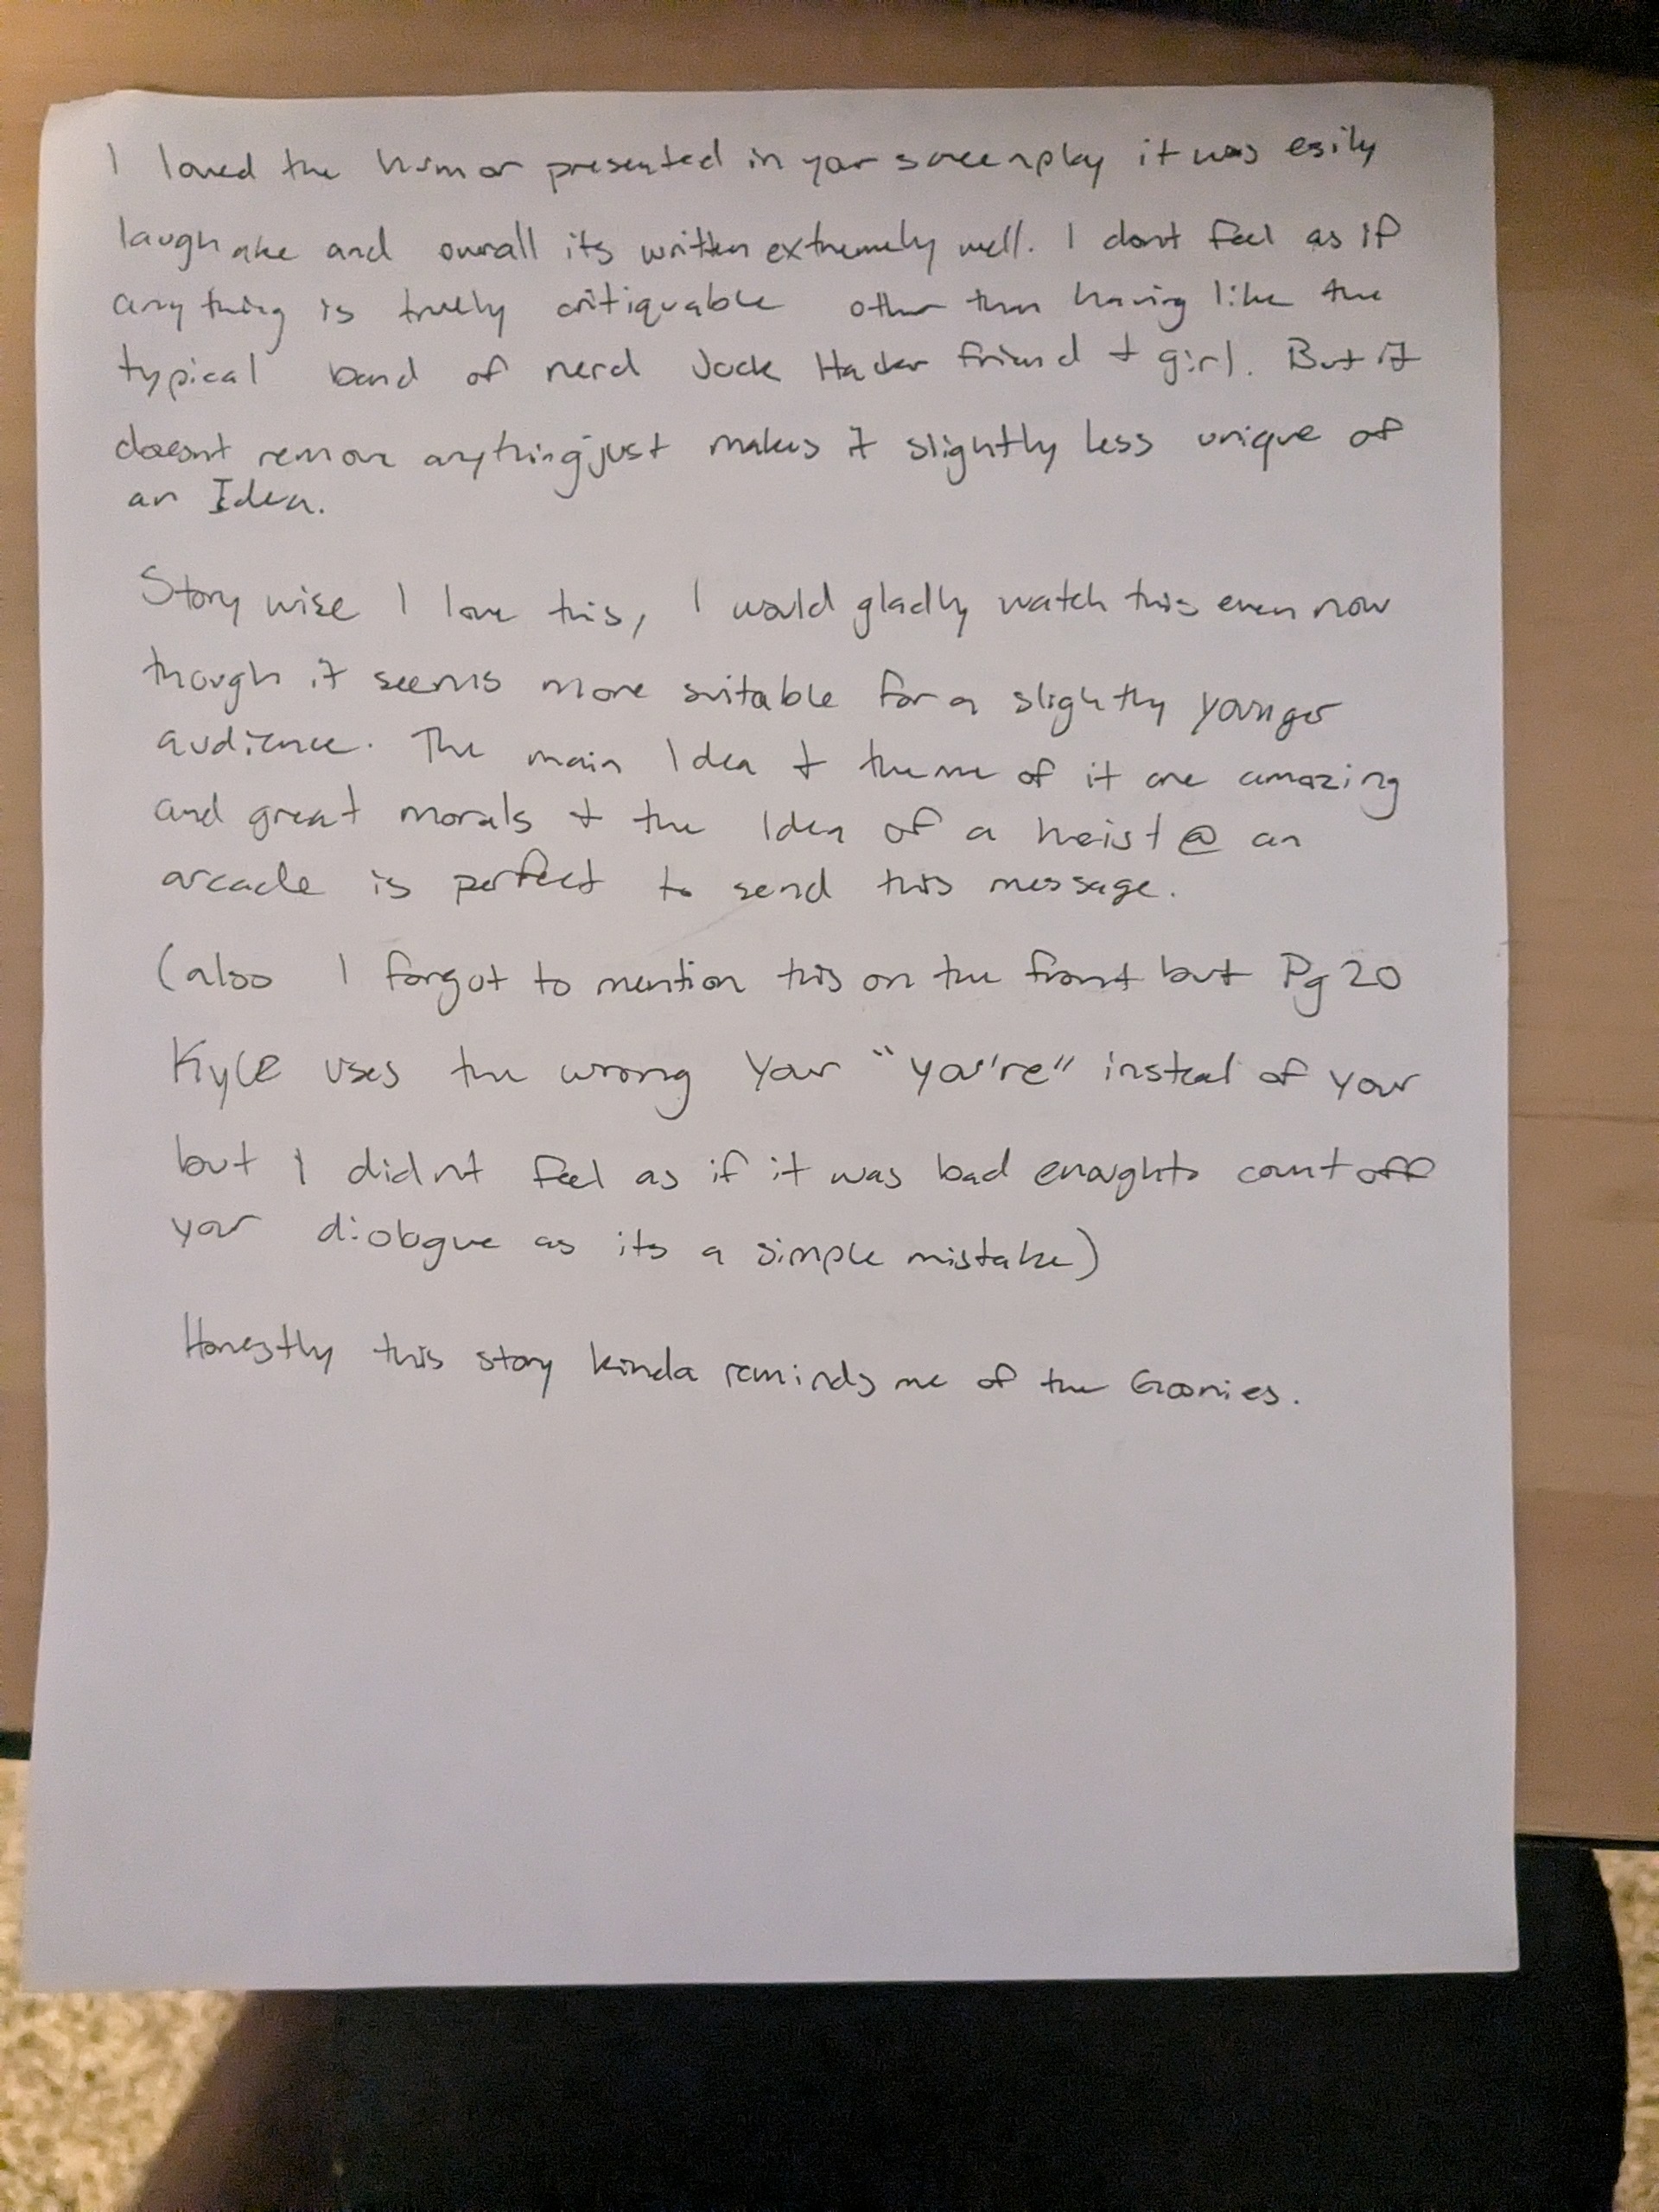 I loved the humor presented in your screenplay it was esily
laughable and overall its written extremely well. I dont feel as if
anything is truely critiquable other than having like the
typical band of nerd Jock Hacker friend + girl. But it
doesnt remove anything just makes it slightly less unique of
an Idea.
Story wise I love this, I would gladly watch this even now
though it seems more suitable for a slightly younger
audience. The main Idea + theme of it are amazing
and great morals + the Idea of a heist @ an
arcade is perfect to send this message.
(also I forgot to mention this on the front but Pg 20
Kyle uses the wrong your "you're" instead of your
but I didnt feel as if it was bad enough to count off
your dialogue as its a simple mistake)
Honestly this story kinda reminds me of the Goonies.